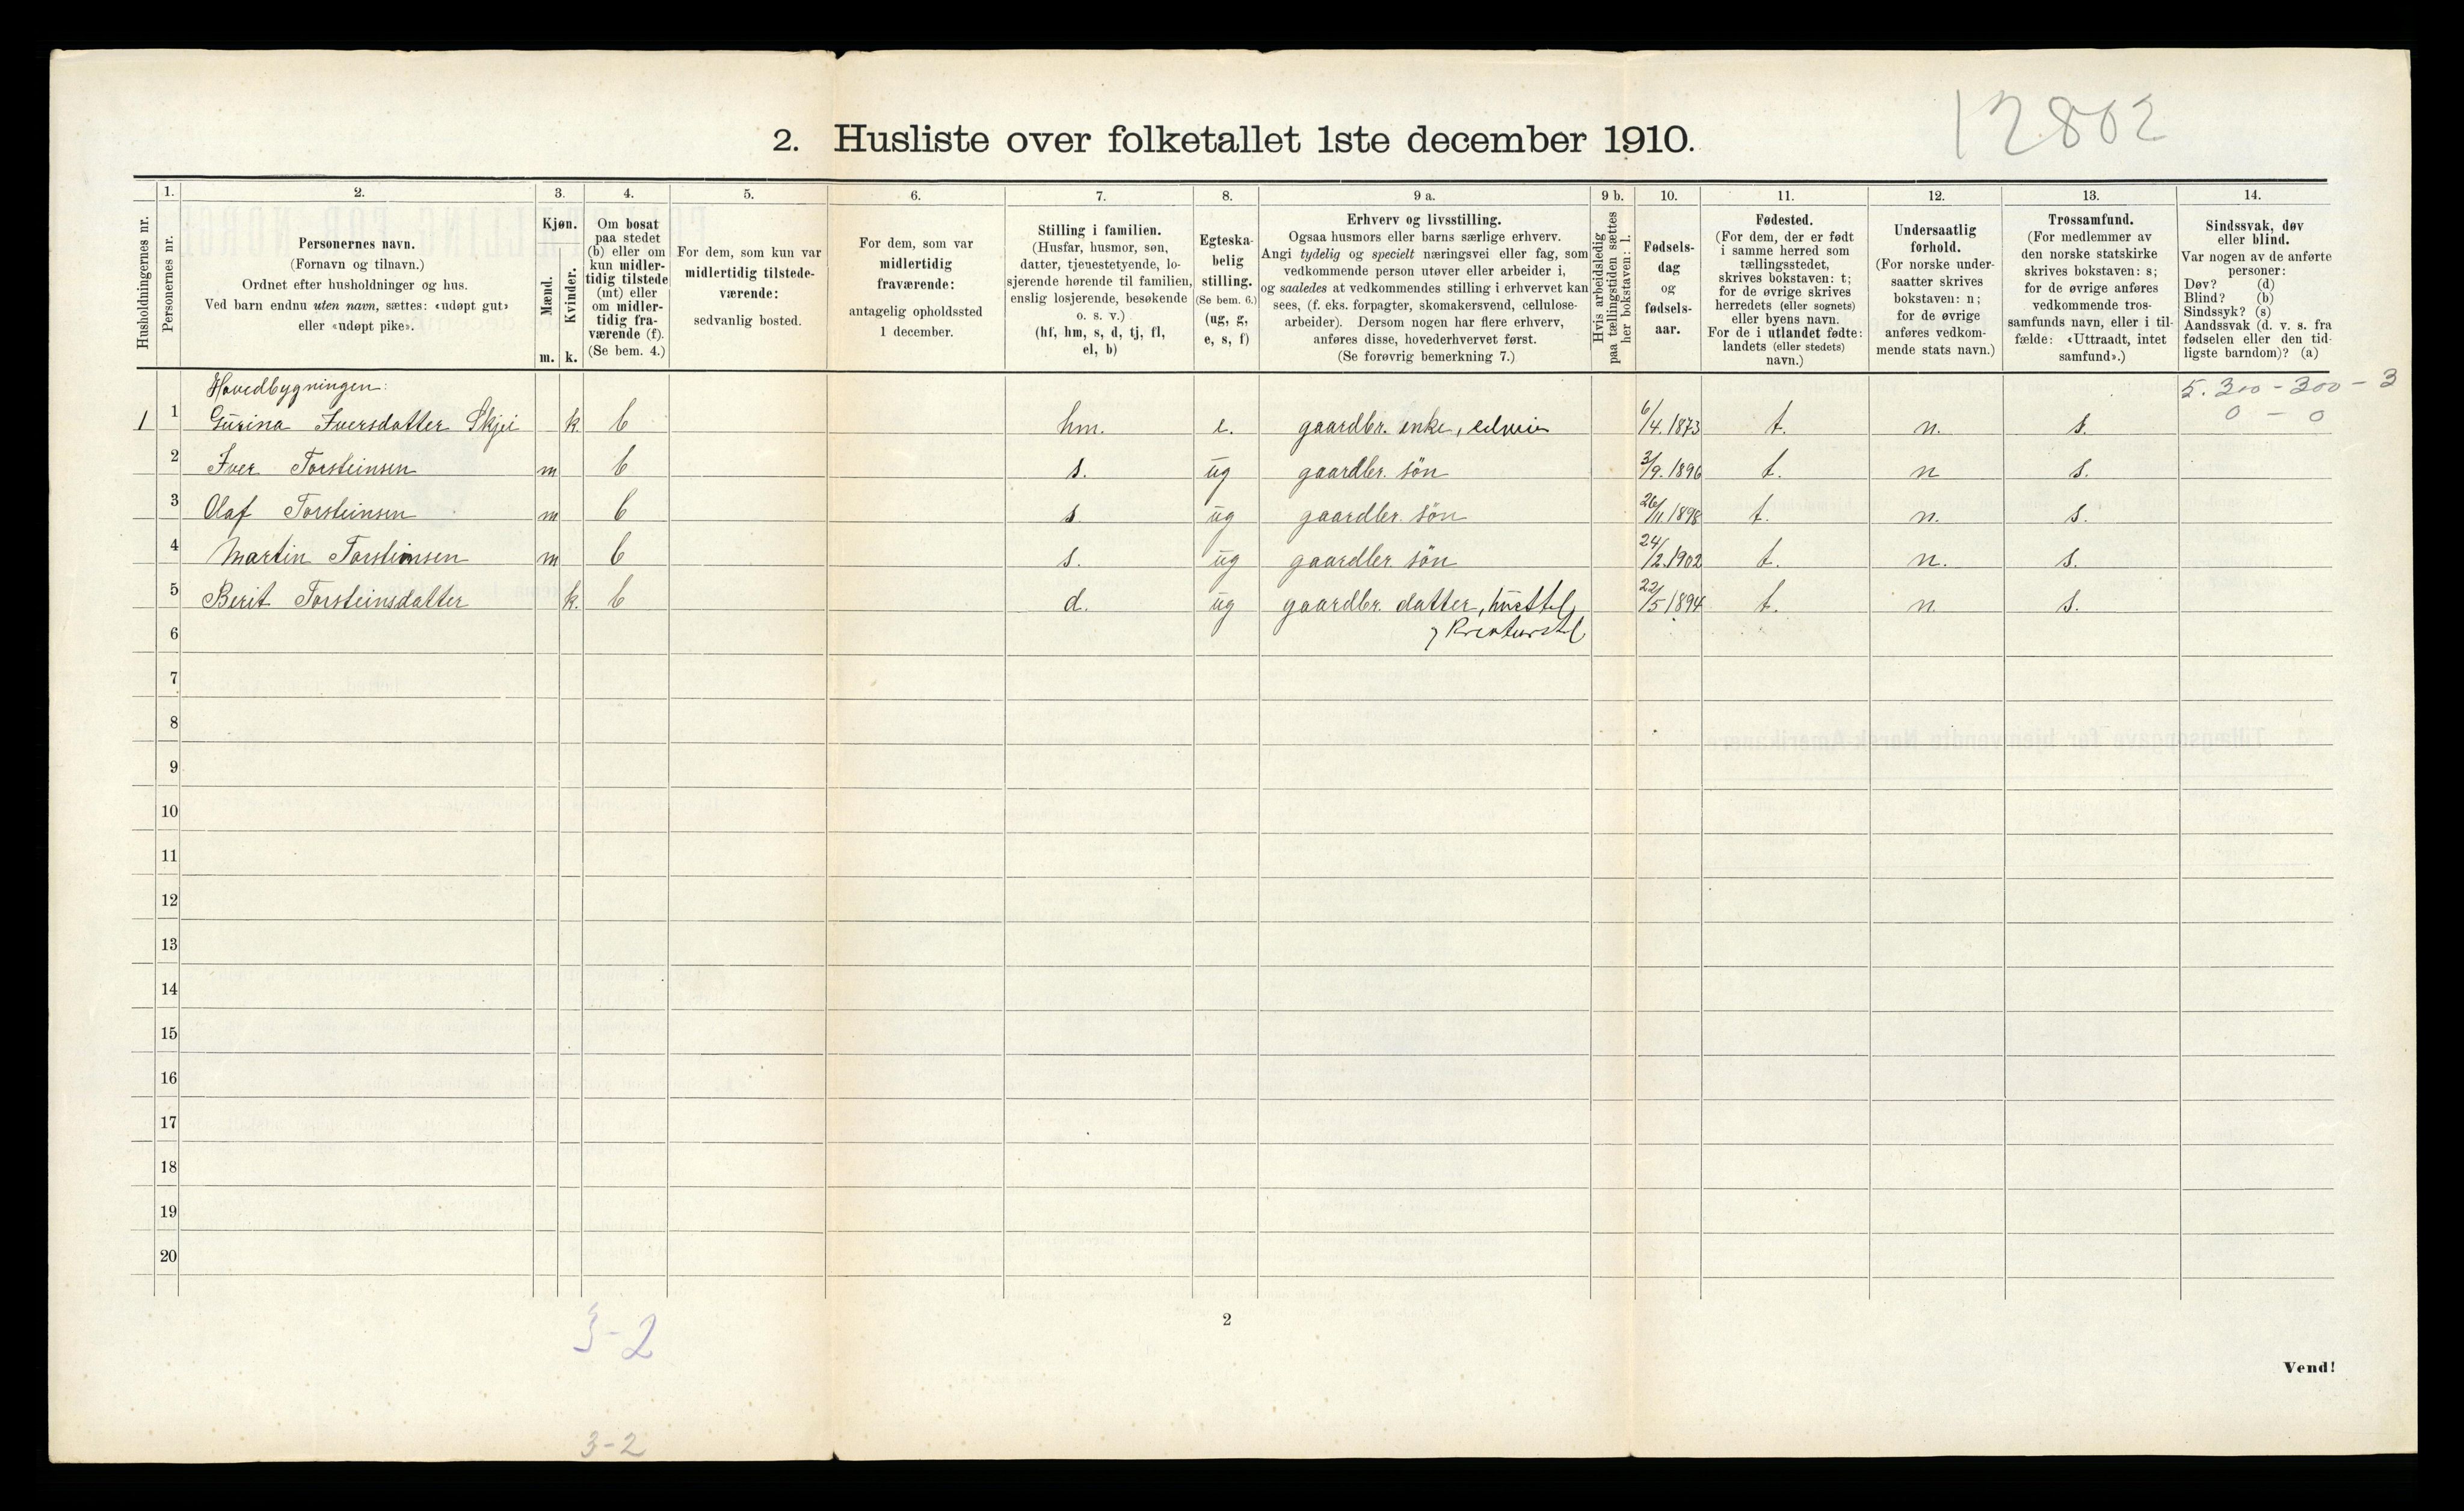 12802
2. Husliste over folketallet 1ste december 1910.
Husholdningernes nr.
1.
Personernes nr.
2.
Personernes navn.
(Fornavn og tilnavn.)
Ordnet efter husholdninger og hus.
Ved barn endnu uten navn, sættes: «udøpt gut»
eller «udøpt pike».
3.
Kjøn.
Mænd.
Kvinder.
m. k.
4.
Om bosat
paa stedet
(b) eller om
kun midler-
tidig tilstede
(mt) eller
om midler-
tidig fra-
værende (f).
(Se bem. 4.)
5.
For dem, som kun var
midlertidig tilstede-
værende:
sedvanlig bosted.
6.
For dem, som var
midlertidig
fraværende:
antagelig opholdssted
1 december.
7.
Stilling i familien.
(Husfar, husmor, søn,
datter, tjenestetyende, lo-
sjerende hørende til familien,
enslig losjerende, besøkende
o. s. v.)
(hf, hm, s, d, tj, fl,
el, b)
8.
Egteska-
belig
stilling.
(Se bem. 6.)
(ug, g,
e, s, f)
9 a.
Erhverv og livsstilling.
Ogsaa husmors eller barns særlige erhverv.
Angi tydelig og specielt næringsvei eller fag, som
vedkommende person utøver eller arbeider i,
og saaledes at vedkommendes stilling i erhvervet kan
sees, (f. eks. forpagter, skomakersvend, cellulose-
arbeider). Dersom nogen har flere erhverv,
anføres disse, hovederhvervet først.
(Se forøvrig bemerkning 7.)
9 b.
Hvis arbeidsledig
paa tællingstiden sættes
her bokstaven: l.
10.
Fødsels-
dag
og
fødsels-
aar.
11.
Fødested.
(For dem, der er født
i samme herred som
tællingsstedet,
skrives bokstaven: t;
for de øvrige skrives
herredets (eller sognets)
eller byens navn.
For de i utlandet fødte:
landets (eller stedets)
navn.)
12.
Undersaatlig
forhold.
(For norske under-
saatter skrives
bokstaven: n;
for de øvrige
anføres vedkom-
mende stats navn.)
13.
Trossamfund.
(For medlemmer av
den norske statskirke
skrives bokstaven: s;
for de øvrige anføres
vedkommende tros-
samfunds navn, eller i til-
fælde: «Uttraadt, intet
samfund».)
14.
Sindssvak, døv
eller blind.
Var nogen av de anførte
personer:
Døv? (d)
Blind? (b)
Sindssyk? (s)
Aandssvak (d. v. s. fra
fødselen eller den tid-
ligste barndom)? (a)
Hovedbygningen:
5. 300 - 300 - 3
0 - 0
1 1 Gurina Iversdatter Skjei k. b hm. e. gaardbr. enke, 6/4.1873 t. n. s.
2 Iver Torsteinsen m b s. ug gaardbr. søn 3/9.1896 t. n s.
3 Olaf Torsteinsen m b s. ug gaardbr. søn 26/11.1898 t. n. s.
4 Martin Torsteinsen m b s. ug gaardbr. søn 24/2.1902 t. n. s.
5 Berit Torsteinsdatter k. b d. ug gaardbr. datter, husstel 22/5 1894 t. n. s.
6 kreaturstel
7
8
9
10
11
12
13
14
15
16
17
18
19
20
3-2
2
Vend!
3-2